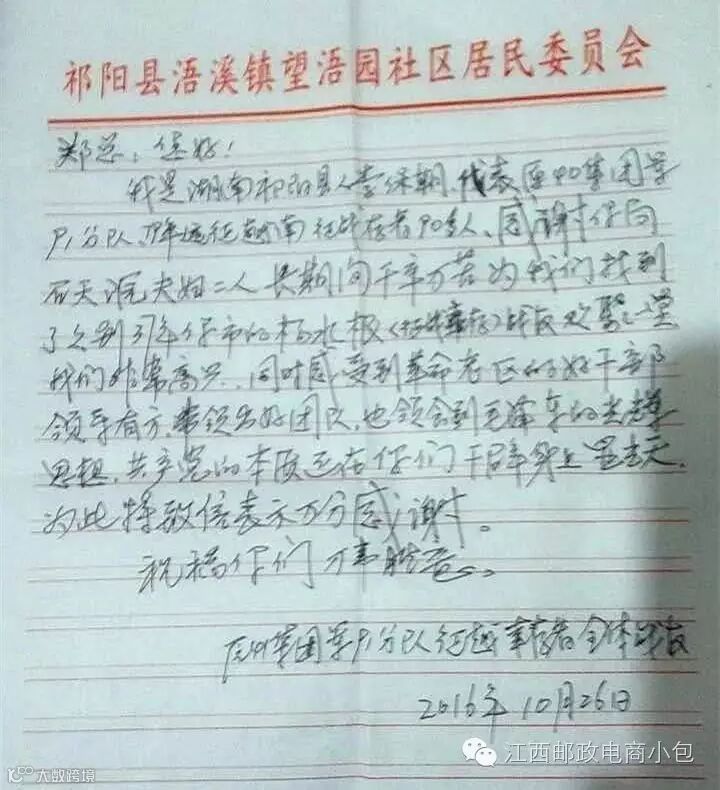 祁阳县浯溪镇望浯园社区居民委员会
郑总，您好！
我是湖南祁阳县人 保朝，代表原 集团
分队，远征越南征战 者90多人，感谢你局
石天 夫妇二人长期间千辛万苦为我们找到
了久别37年你市的杨水根（ ）战友欢聚一堂
我们非常高兴，同时感受到革命老区的好干部
领导有方，带领出好团队，也领会到毛泽东的光辉
思想，共产党的本质还在你们干群身上
为此特致信表示万分感谢。
祝福你们万事胜意。
集团 分队征越 者全体战友
2016年10月26日
江西邮政电商小包
大数跨境